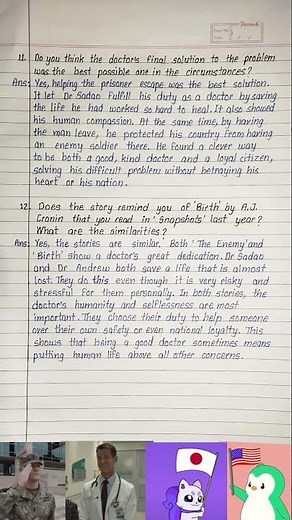 11. Do you think the doctor's final solution to the problem
was the best possible one in the circumstances?
Ans: Yes, helping the prisoner escape was the best solution.
It let Dr Sadao fulfill his duty as a doctor by saving
the life he had worked so hard to heal. It also showed
his human compassion. At the same time, by having
the man leave, he protected his country from having
an enemy soldier there. He found a clever way
to be both a good, kind doctor and a loyal citizen,
solving his difficult problem without betraying his
heart or his nation.
12. Does the story remind you of 'Birth' by A.J.
Cronin that you read in 'Snapshots' last year?
What are the similarities?
Ans: Yes, the stories are similar. Both 'The Enemy' and
'Birth' show a doctor's great dedication. Dr Sadao
and Dr Andrew both save a life that is almost
lost. They do this even though it is very risky and
stressful for them personally. In both stories, the
doctor's humanity and selflessness are most
important. They choose their duty to help someone
over their own safety or even national loyalty. This
shows that being a good doctor sometimes means
putting human life above all other concerns.